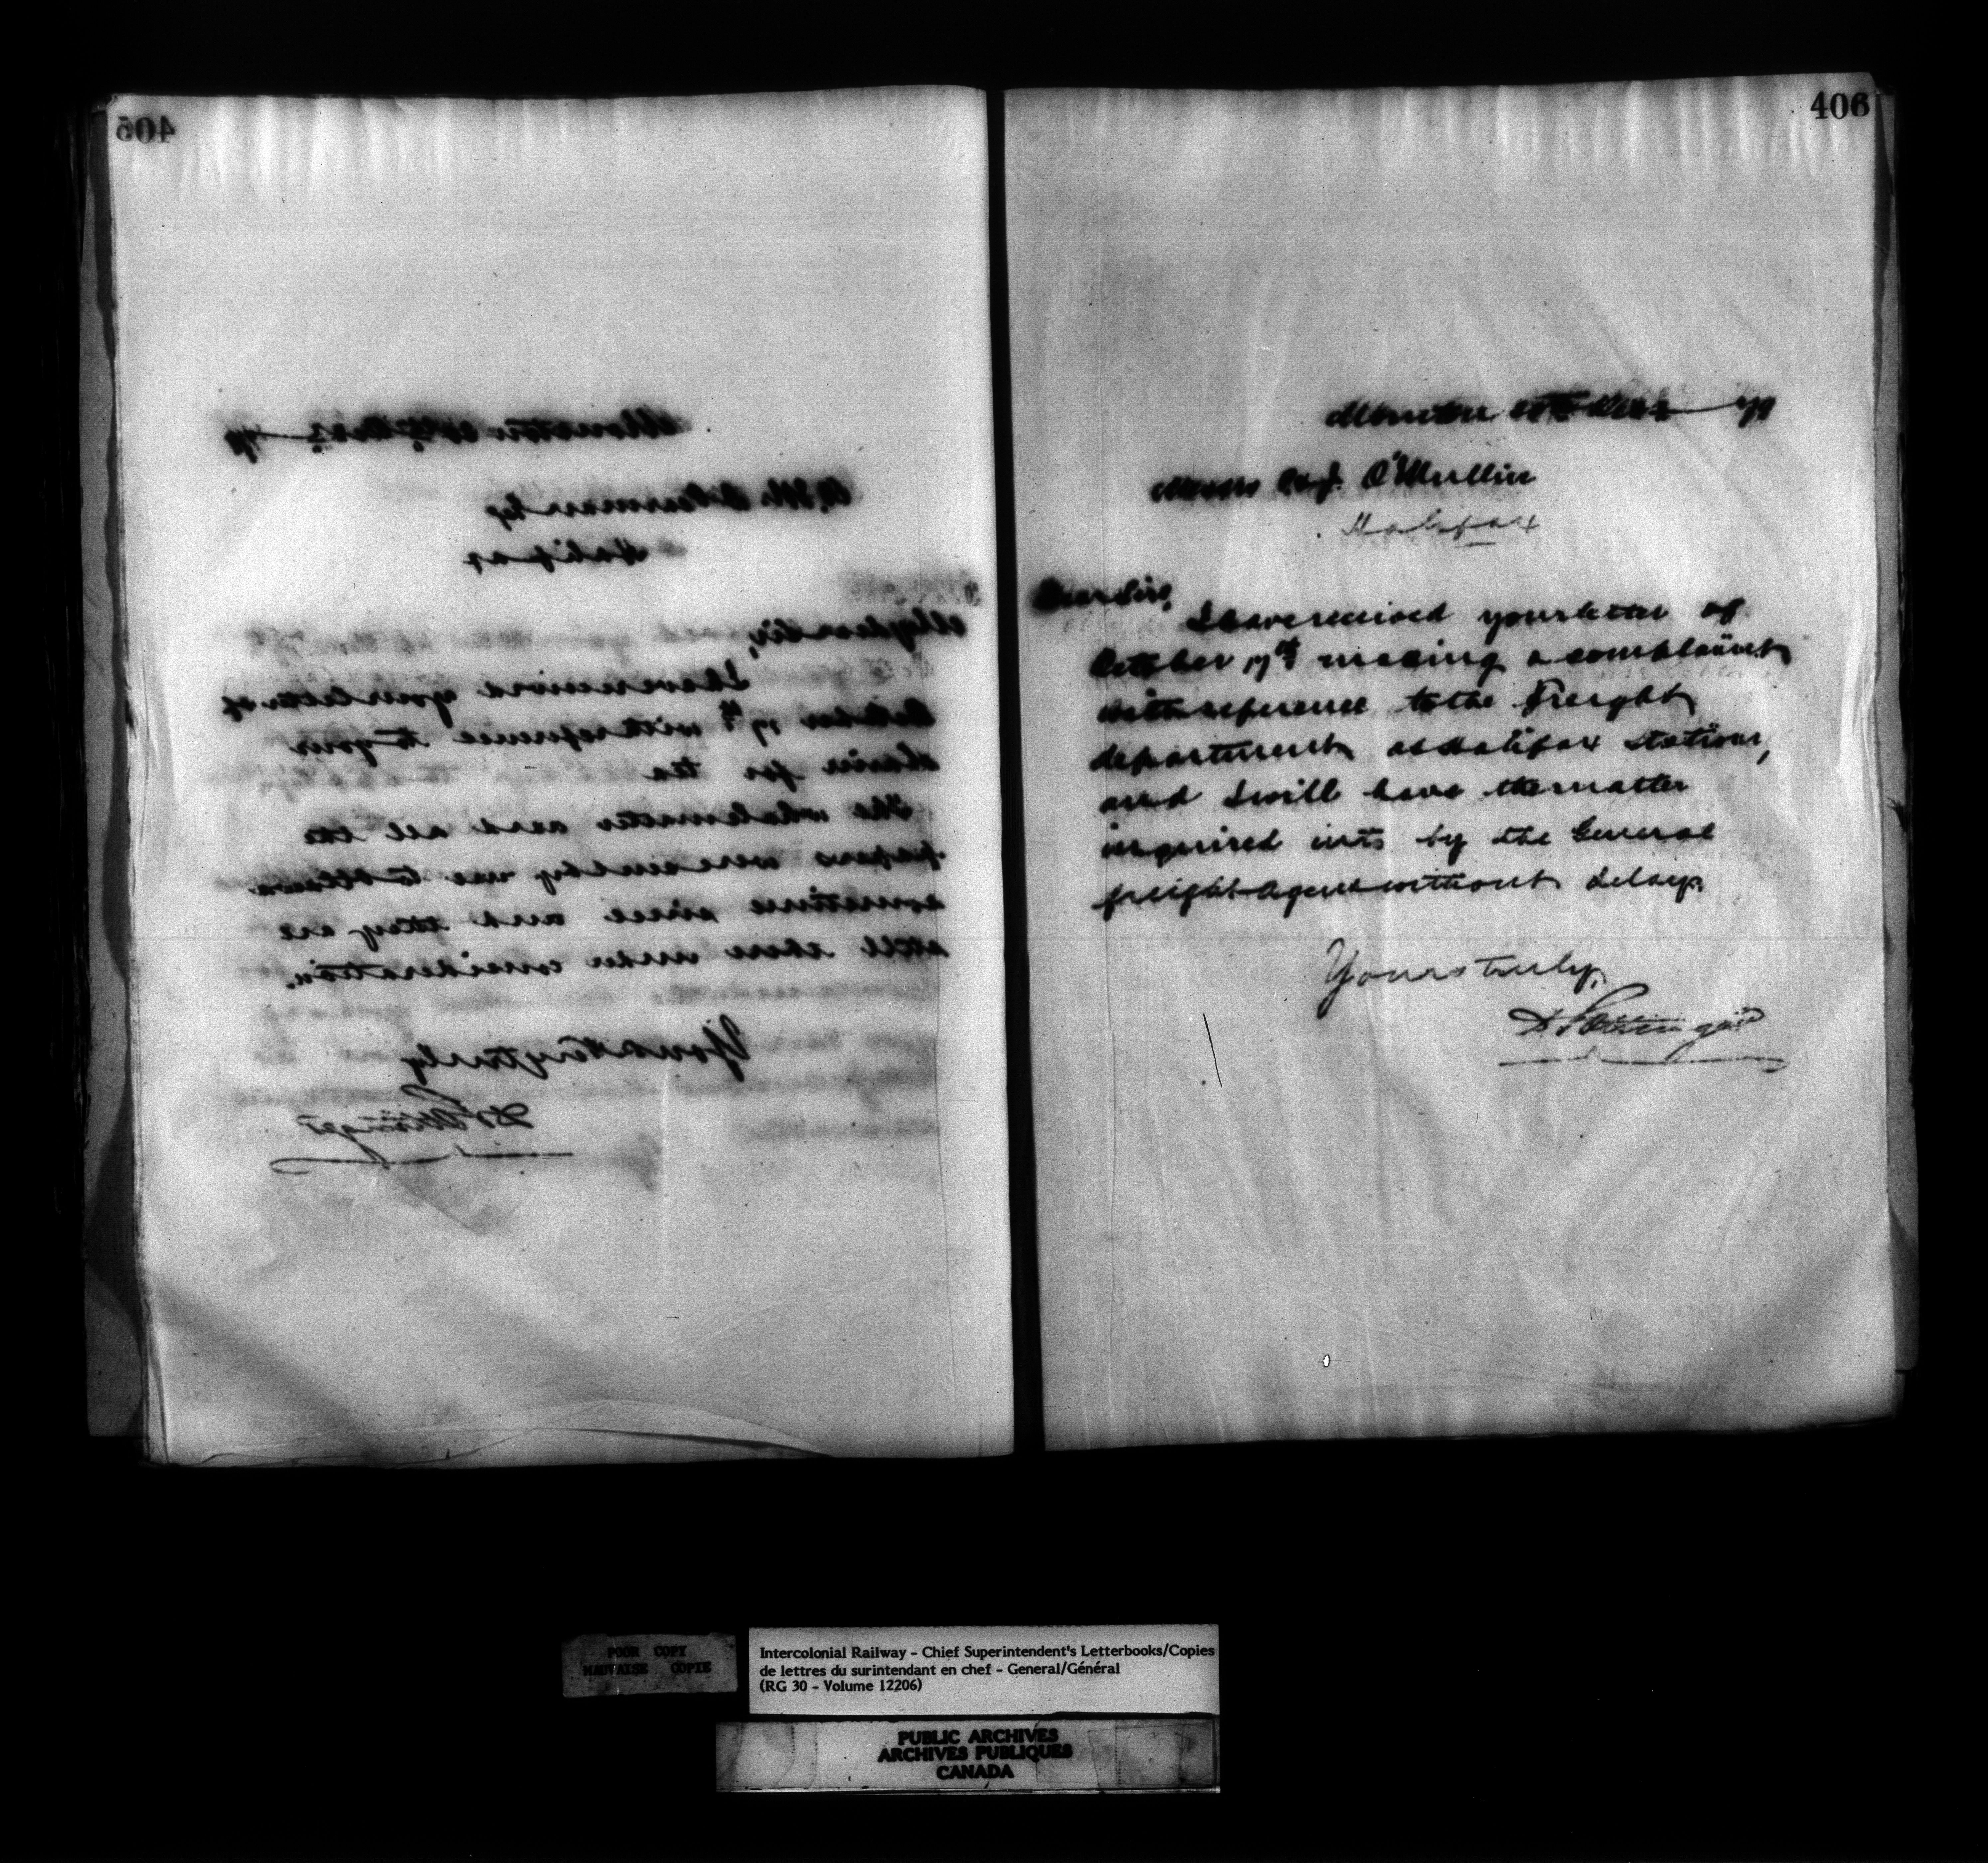 405
Moncton
Halifax
My dear Sir,
I have received your letter of
October 17th with reference to your
claim for tea
The whole matter and all the
papers were sent by me to Ottawa
sometime since and they are
still there under consideration.
Yours very truly
D Pottinger
406
Moncton
Messrs O'Mullin
Halifax
Dear Sirs,
I have received your letter of
October 17th making a complaint
with reference to the Freight
department at Halifax station,
and I will have the matter
inquired into by the General
freight Agent without delay.
Yours truly,
D Pottinger
POOR COPY
MAUVAISE COPIE
Intercolonial Railway - Chief Superintendent's Letterbooks/Copies
de lettres du surintendant en chef - General/Général
(RG 30 - Volume 12206)
PUBLIC ARCHIVES
ARCHIVES PUBLIQUES
CANADA